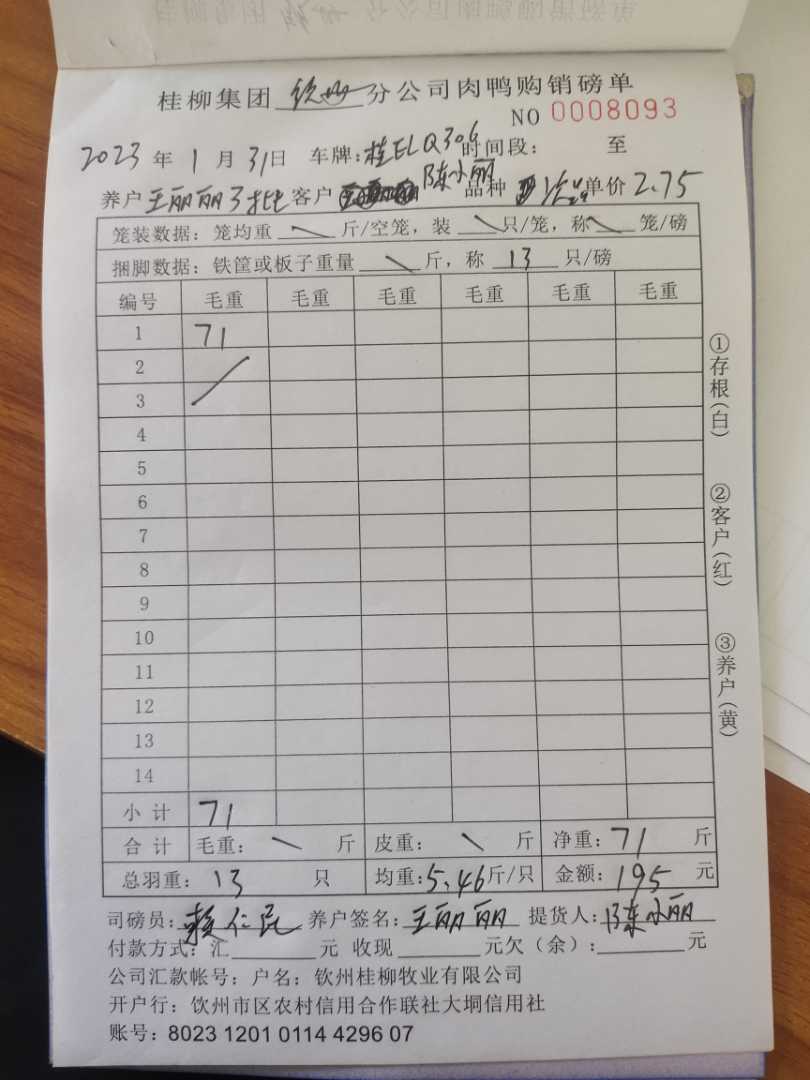 桂柳集团 钦州 分公司肉鸭购销磅单
NO 0008093
2023 年 1 月 31 日 车牌: 桂ELQ306 时间段: 至
养户 王丽丽3批 客户 陈小丽 品种 单价 2.75
笼装数据: 笼均重 斤/空笼, 装 只/笼, 称 笼/磅
捆脚数据: 铁筐或板子重量 斤, 称 13 只/磅
编号 毛重 毛重 毛重 毛重 毛重 毛重
1 71
2
3
4
5
6
7
8
9
10
11
12
13
14
小计 71
合计 毛重: 斤 皮重: 斤 净重: 71 斤
总羽重: 13 只 均重: 5.46 斤/只 金额: 195 元
司磅员: 赖仁昆 养户签名: 王丽丽 提货人: 陈小丽
付款方式: 汇 元 收现 元欠(余): 元
公司汇款帐号: 户名: 钦州桂柳牧业有限公司
开户行: 钦州市区农村信用合作联社大垌信用社
账号: 8023 1201 0114 4296 07
①存根(白)
②客户(红)
③养户(黄)